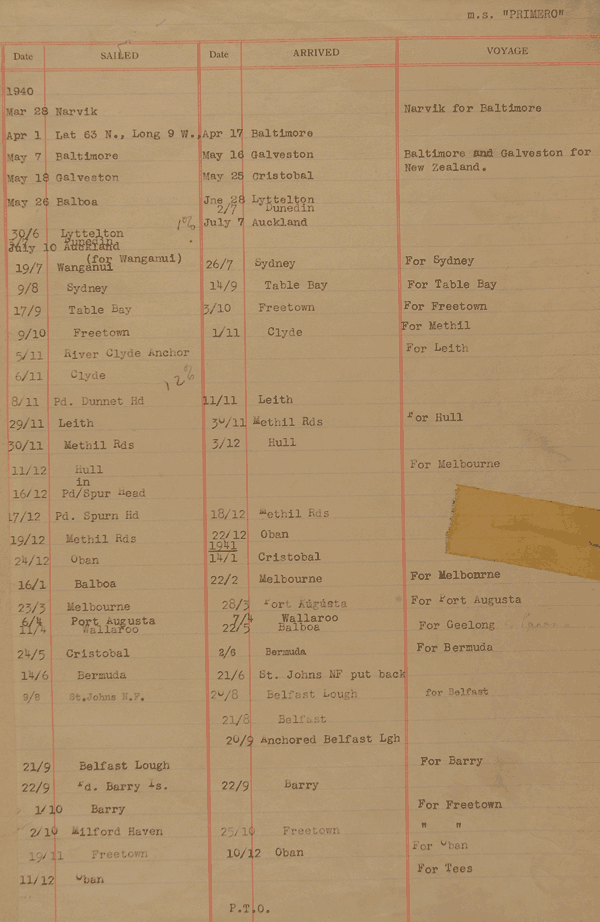 m.s. "PRIMERO"
Date SAILED Date ARRIVED VOYAGE
1940
Mar 28 Narvik Narvik for Baltimore
Apr 1 Lat 63 N., Long 9 W., Apr 17 Baltimore
May 7 Baltimore May 16 Galveston Baltimore and Galveston for
May 18 Galveston May 25 Cristobal New Zealand.
May 26 Balboa Jne 28 Lyttelton
2/7 Dunedin
30/6 Lyttelton July 7 Auckland
3/7 Dunedin
July 10 Auckland
(for Wanganui)
19/7 Wanganui 26/7 Sydney For Sydney
9/8 Sydney 14/9 Table Bay For Table Bay
17/9 Table Bay 3/10 Freetown For Freetown
9/10 Freetown 1/11 Clyde For Methil
5/11 River Clyde Anchor For Leith
6/11 Clyde
8/11 Pd. Dunnet Hd 11/11 Leith
29/11 Leith 30/11 Methil Rds For Hull
30/11 Methil Rds 3/12 Hull
11/12 Hull For Melbourne
in
16/12 Pd/Spur Head
17/12 Pd. Spurn Hd 18/12 Methil Rds
19/12 Methil Rds 22/12 Oban
1941
24/12 Oban 14/1 Cristobal
16/1 Balboa 22/2 Melbourne For Melbourne
23/3 Melbourne 28/3 Port Augusta For Port Augusta
6/4 Port Augusta 7/4 Wallaroo
11/4 Wallaroo 22/5 Balboa For Geelong
24/5 Cristobal 2/6 Bermuda For Bermuda
14/6 Bermuda 21/6 St. Johns NF put back
9/8 St.Johns N.F. 20/8 Belfast Lough for Belfast
21/8 Belfast
20/9 Anchored Belfast Lgh
21/9 Belfast Lough For Barry
22/9 Pd. Barry Is. 22/9 Barry
1/10 Barry For Freetown
2/10 Milford Haven 25/10 Freetown " "
19/11 Freetown 10/12 Oban For Oban
11/12 Oban For Tees
P.T.O.